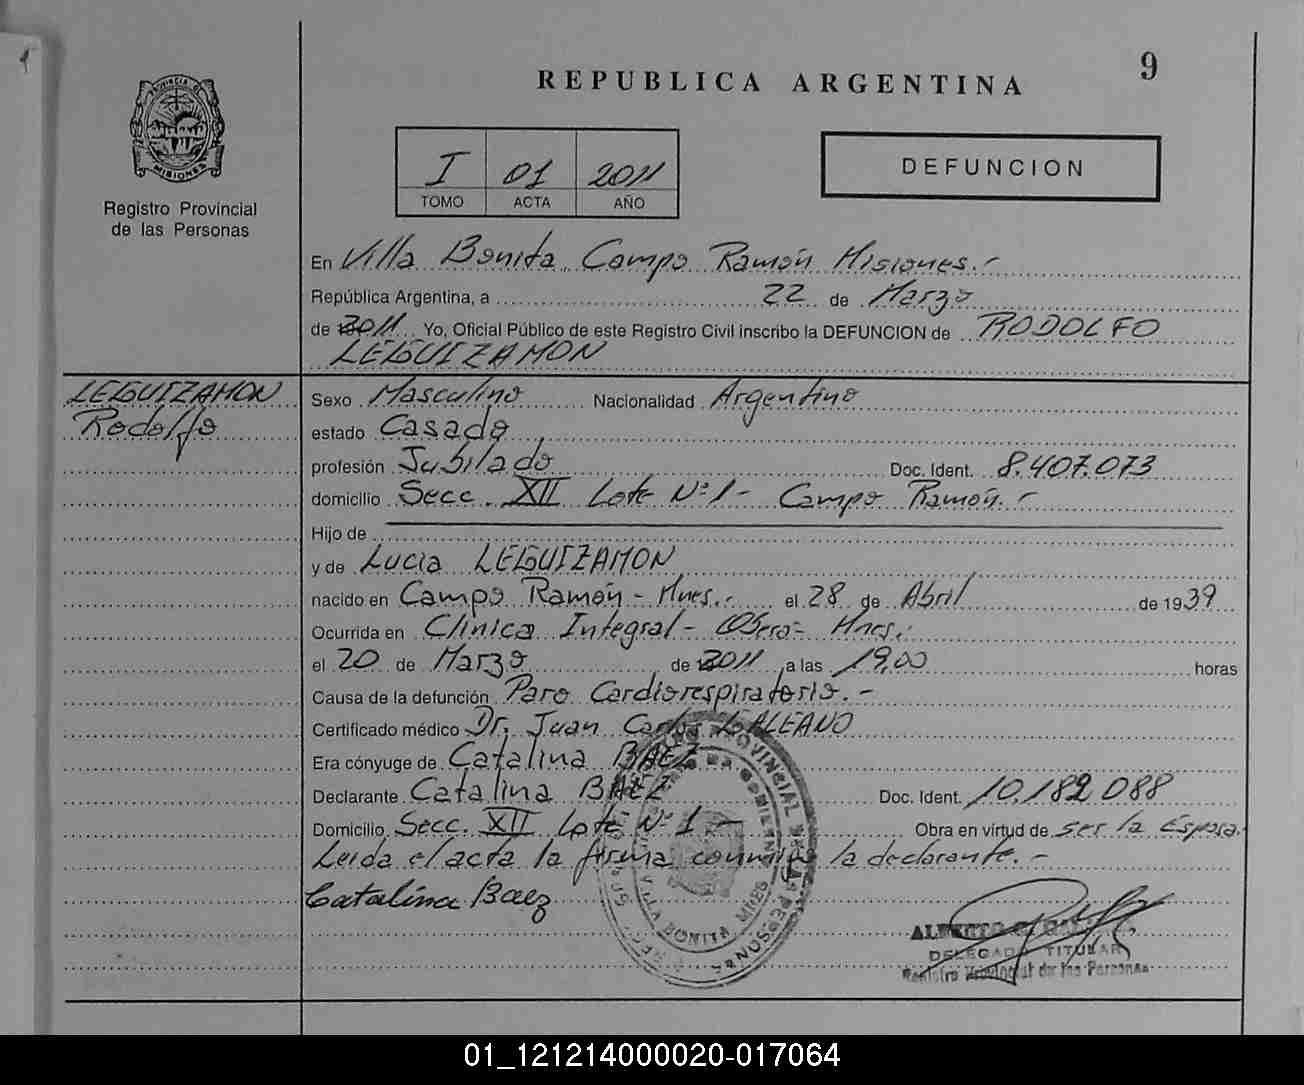 9
REPUBLICA ARGENTINA
PROVINCIA DE
MISIONES
Registro Provincial
de las Personas
I 01 2011
TOMO ACTA AÑO
DEFUNCION
En Villa Bonita Campo Ramón Misiones.-
República Argentina, a 22 de Marzo
de 2011 Yo, Oficial Público de este Registro Civil inscribo la DEFUNCION de RODOLFO
LEGUIZAMON
LEGUIZAMON
Rodolfo
Sexo Masculino Nacionalidad Argentino
estado Casado
profesión Jubilado Doc. Ident. 8.407.073
domicilio Secc. XII Lote Nº 1 - Campo Ramón.-
Hijo de
y de Lucia LEGUIZAMON
nacido en Campo Ramón - Mnes.- el 28 de Abril de 1939
Ocurrida en Clínica Integral - Oberá - Mnes.-
el 20 de Marzo de 2011 a las 19,00 horas
Causa de la defunción Paro Cardiorespiratorio.-
Certificado médico Dr. Juan Carlos GALEANO
Era cónyuge de Catalina BAEZ
Declarante Catalina BAEZ Doc. Ident. 10.182.088
Domicilio Secc. XII Lote Nº 1 - Obra en virtud de ser la Esposa.
Leida el acta la firma conmigo la declarante.-
Catalina Baez
PROVINCIAL DE LAS PERSONAS
VILLA BONITA MNES
DELEGADO TITULAR
Registro Provincial de las Personas
01_121214000020-017064